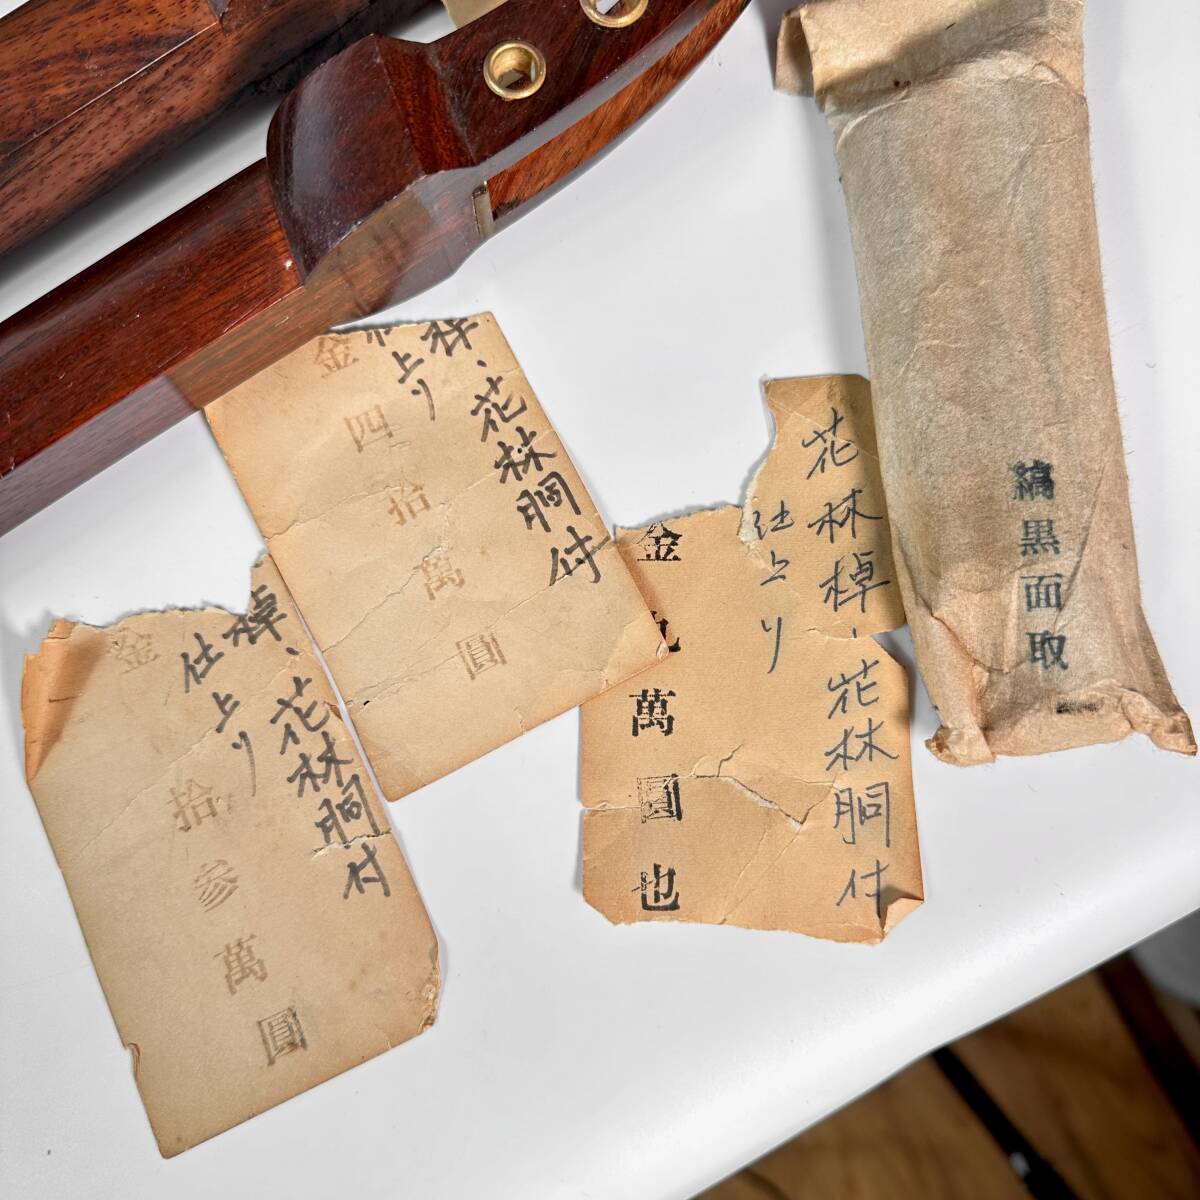 縞黒面取
花林棹、花林胴付
仕上り
金九萬圓也
棹、花林胴付
仕上り
金四拾萬圓
棹、花林胴付
仕上り
金拾参萬圓